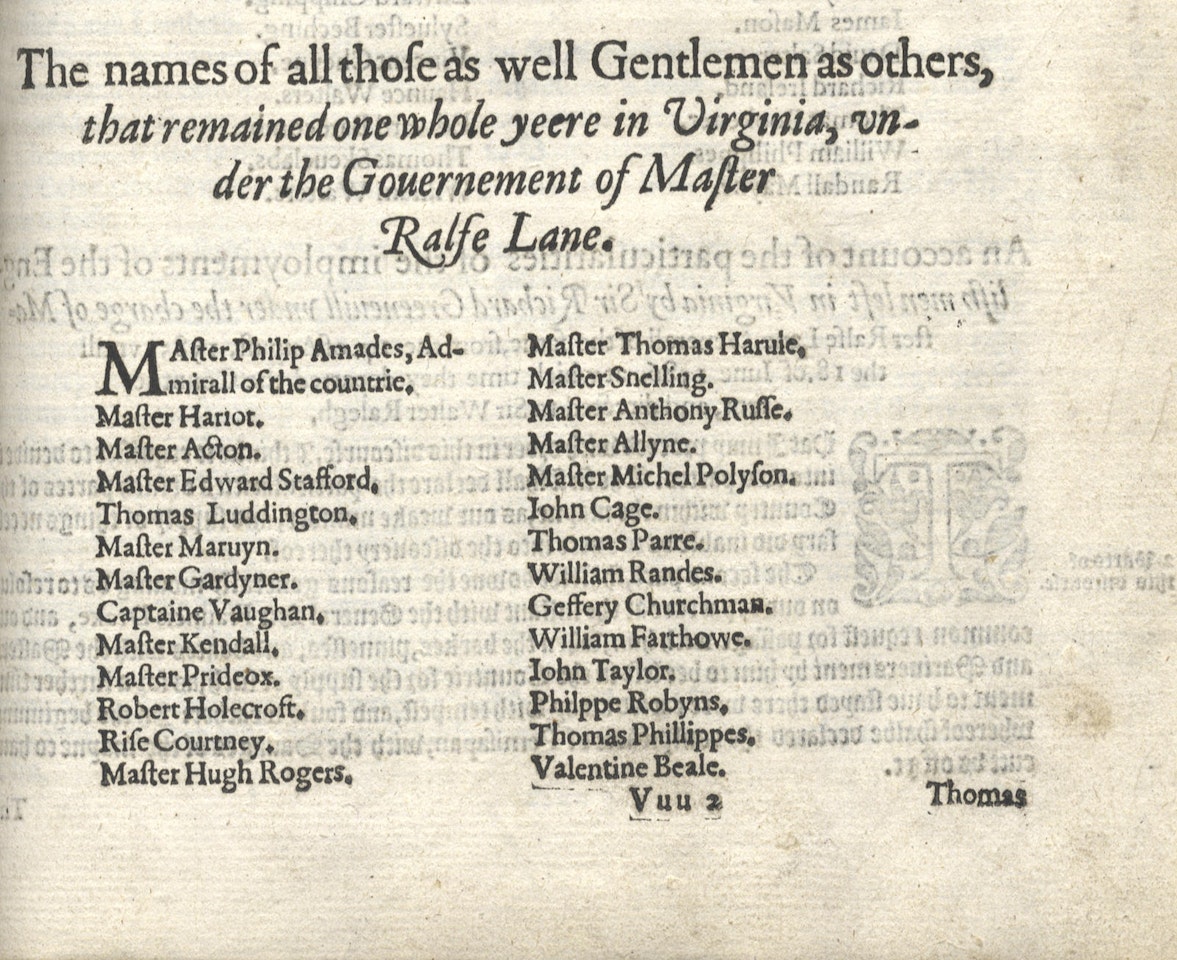 The names of all thoſe as well Gentlemen as others,
that remained one whole yeere in Virginia, vn-
der the Gouernement of Maſter
Ralfe Lane.
MAſter Philip Amades, Ad-
mirall of the countrie,
Maſter Hariot.
Maſter Acton.
Maſter Edward Stafford,
Thomas Luddington,
Maſter Maruyn.
Maſter Gardyner.
Captaine Vaughan,
Maſter Kendall,
Maſter Prideox.
Robert Holecroft.
Riſe Courtney.
Maſter Hugh Rogers.
Maſter Thomas Haruie,
Maſter Snelling.
Maſter Anthony Ruſſe.
Maſter Allyne.
Maſter Michel Polyſon.
Iohn Cage.
Thomas Parre.
William Randes.
Geffery Churchman.
William Farthowe.
Iohn Taylor.
Philppe Robyns,
Thomas Phillippes.
Valentine Beale.
Vuu 2
Thomas